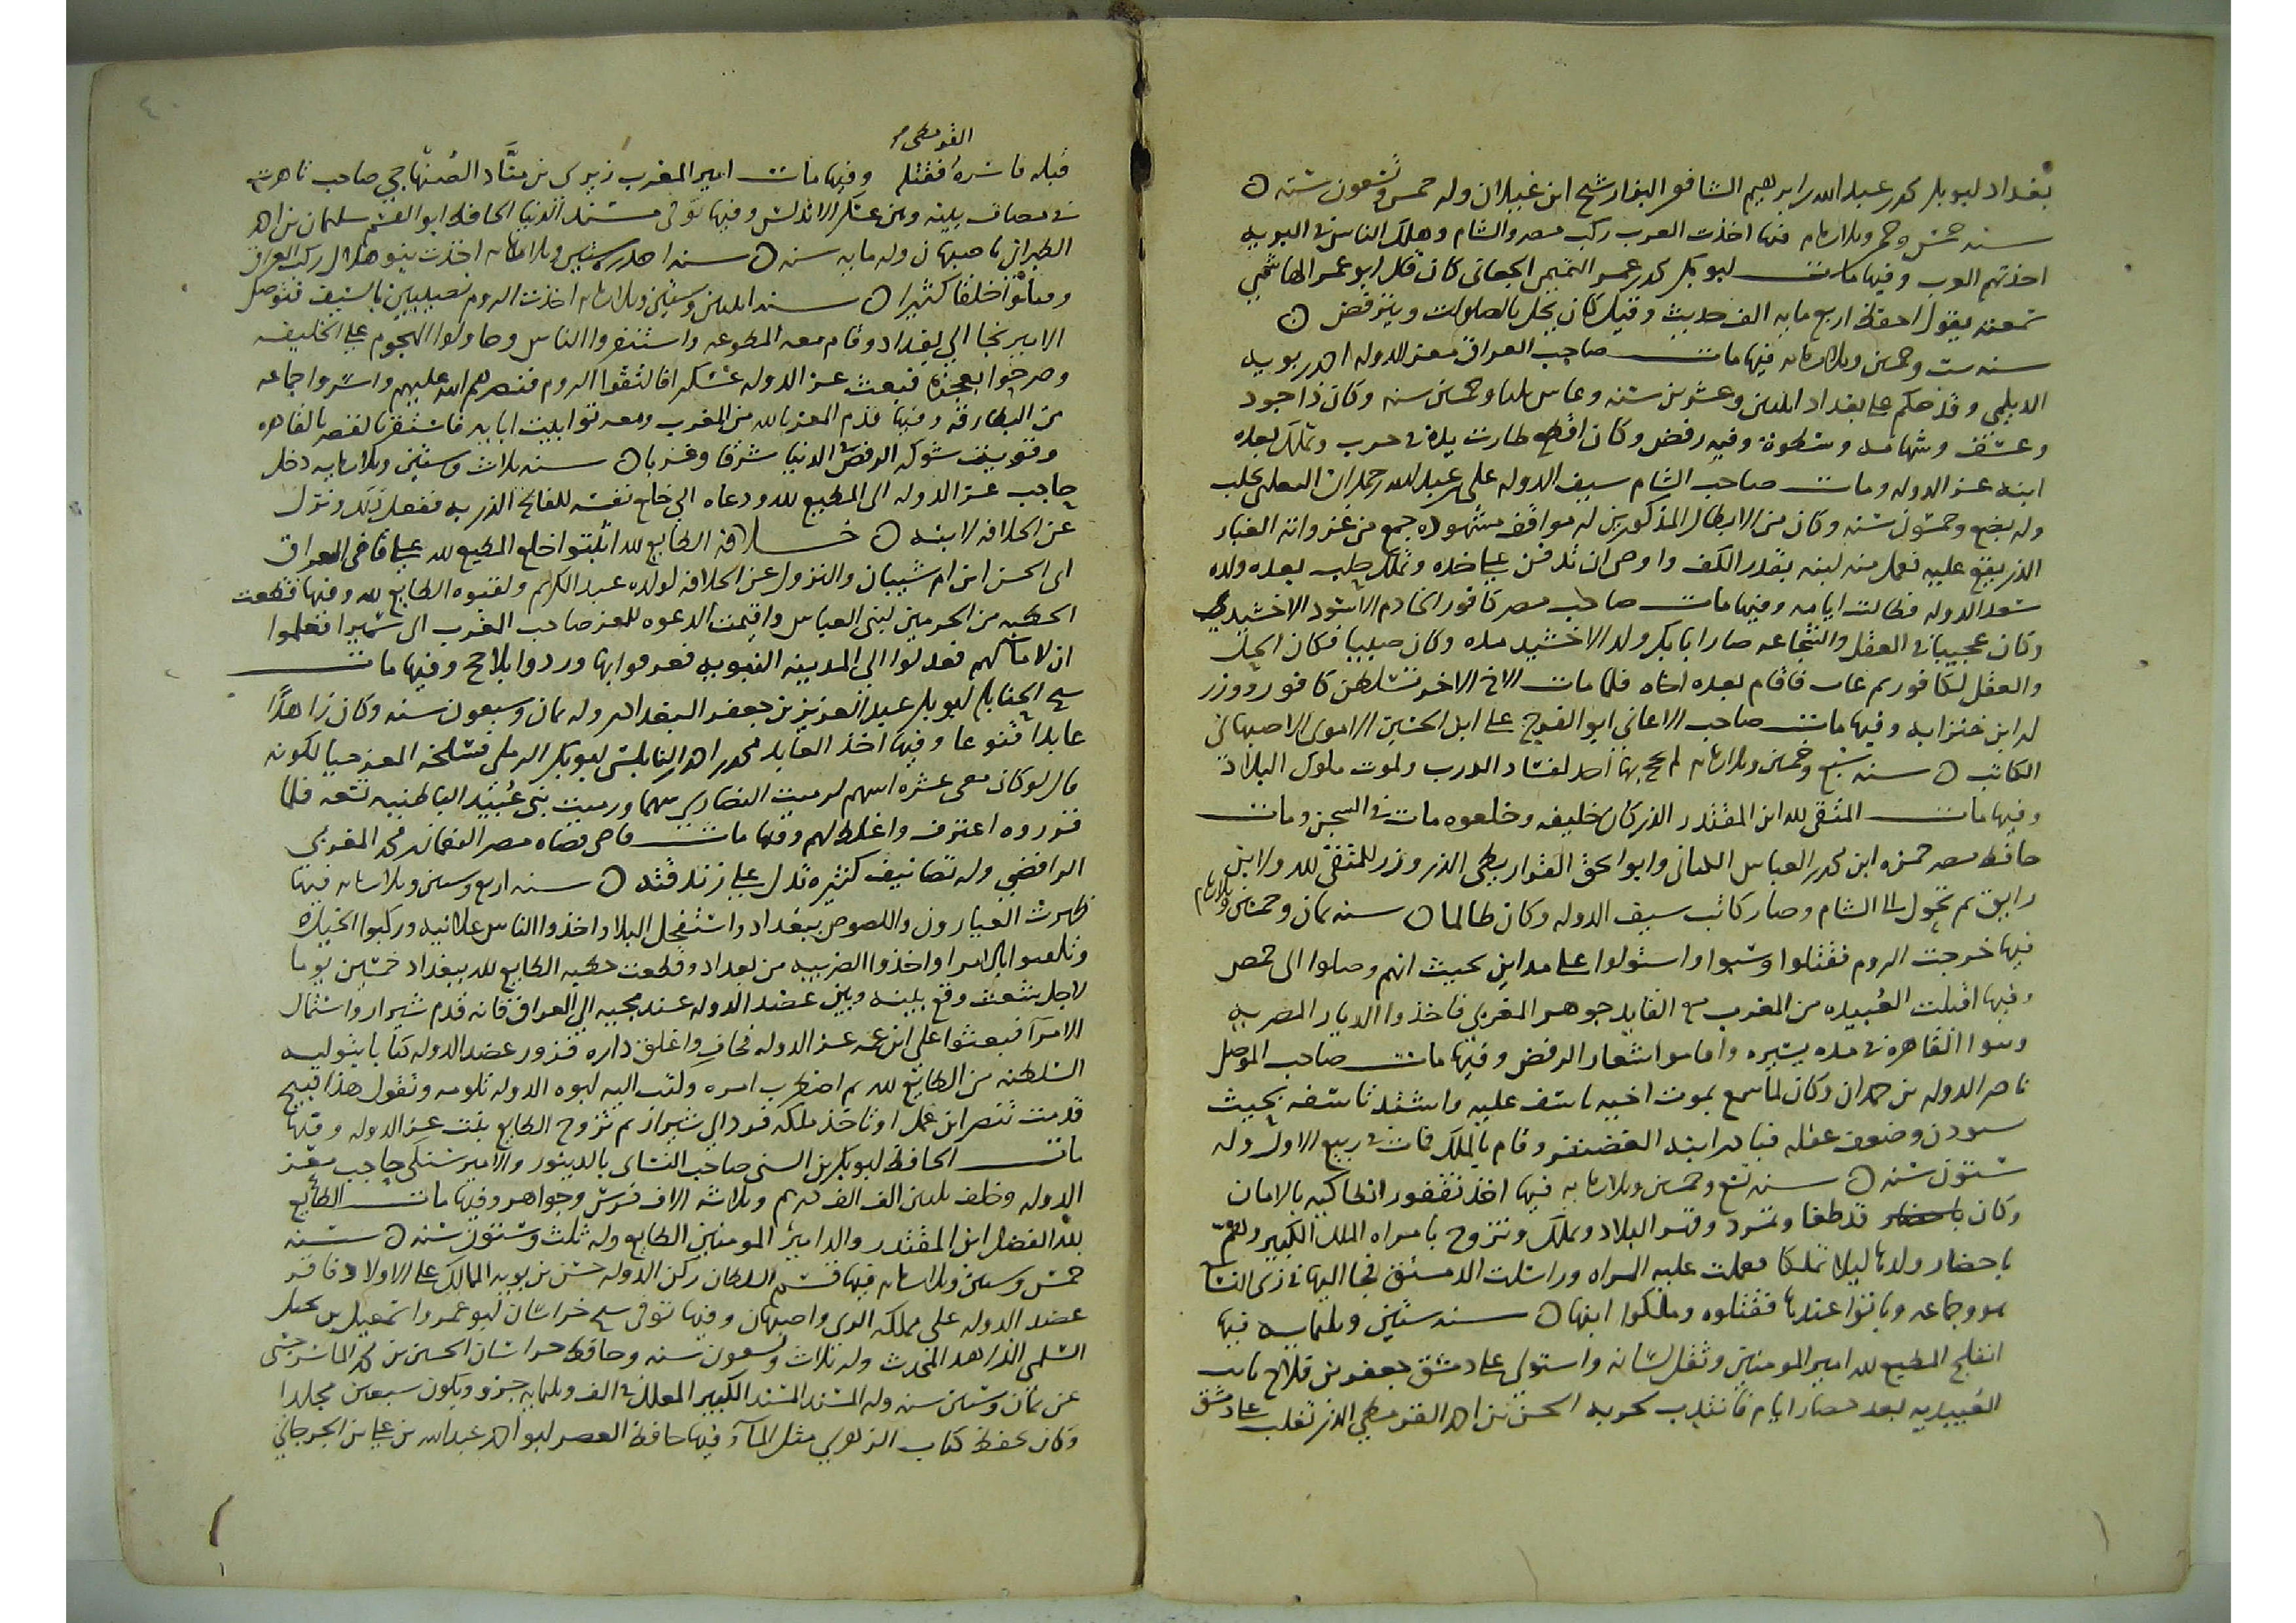 بغداد ابو بكر محمد بن عبد الله بن ابرهيم الشافعي البزار شيخ ابن غيلان وله خمس وتسعون سنه
سنه خمس وخمسين وثلاثمايه فيها اخذت العرب ركب مصر والشام وهلك الناس في البريه
اخذتهم العرب وفيها مات ابو بكر محمد بن عمر التميمي الجعابي كان قال ابو عمر الهاشمي
سمعته يقول احفظ اربع مايه الف حديث وقيل كان يخل بالصلوات ويترفض
سنه ست وخمسين وثلاثمايه فيها مات صاحب العراق معز الدوله احمد بن بويه
الديلمي وقد حكم على بغداد اثنين وعشرين سنه وعاش ثلثا وخمسين سنه وكان ذا جود
وعسف وشهامه وسطوة وفيه رفض وكان اقطع طارت يده في حرب وتملك بعده
ابنه عز الدوله ومات صاحب الشام سيف الدوله علي بن عبد الله بن حمدان الثعلبي بحلب
وله بضع وخمسون سنه وكان من الابطال المذكورين له مواقف مشهوده جمع من غزواته الغبار
الذي يقع عليه فعمل منه لبنه بقدر الكف واوصى ان تدفن على خده وتملك حلب بعده ولده
سعد الدوله فطالت ايامه وفيها مات صاحب مصر كافور الخادم الاسود الاخشيدي
وكان عجيبا في العقل والشجاعه صار اتابك ولد الاخشيد مده وكان صبيا فكان الحل
والعقد لكافور ثم مات فاقام بعده اخاه فلما مات الاخ الاخر تسلطن كافور ووزر
له ابن خنزابه وفيها مات صاحب الاغاني ابو الفرج علي ابن الحسين الاموي الاصبهاني
الكاتب سنه سبع وخمسين وثلاثمايه لم يحج بها احد لفساد الدرب ولموت ملوك البلاد
وفيها مات المتقي لله ابن المقتدر الذي كان خليفه وخلعوه مات في السجن ومات
حافظ مصر حمزه ابن محمد بن العباس الكناني وابو اسحق القراريطي الذي وزر للمتقي لله ولابن
رايق ثم تحول الى الشام وصار كاتب سيف الدوله وكان ظالما سنه ثمان وخمسين وثلاثمايه
فيها خرجت الروم فقتلوا وسبوا واستولوا على مداين بحيث انهم وصلوا الى حمص
وفيها اقبلت العبيديه من المغرب مع القايد جوهر المغربي فاخذوا الديار المصريه
وبنوا القاهره في مده يسيره واقاموا شعار الرفض وفيها مات صاحب الموصل
ناصر الدوله بن حمدان وكان لما سمع بموت اخيه تاسف عليه واشتد تاسفه بحيث
تسودن وضعف عقله فبادر ابنه الغضنفر وقام بالملك فمات في ربيع الاول وله
ستون سنه سنه تسع وخمسين وثلاثمايه فيها اخذ نقفور انطاكيه بالامان
وكان قد طغا وتمرد وقهر البلاد وتملك وتزوج بامراه الملك الكبير وهم
باحضار ولدها ليلا تملكا فعملت عليه المراه وراسلت الدمستق فجا اليها في زي النسا
هو وجماعه وباتوا عندها فقتلوه وملكوا ابنها سنه ستين وثلثمايه فيها
انفلج المطيع لله امير المومنين وثقل لسانه واستولى على دمشق جعفر بن فلاح نايب
العبيديه بعد حصار ايام فانتدب لحربه الحسن بن احمد القرمطي الذي تغلب على دمشق
القرمطي
قبله فاسره فقتله وفيها مات امير المغرب زيري بن مناد الصنهاجي صاحب تاهرت
في مصاف بينه وبين عسكر الاندلس وفيها توفي مسند الدنيا الحافظ ابو القسم سليمان بن احمد
الطبراني باصبهان وله مايه سنه سنه احدى وستين وثلاثمايه اخذت بنو هلال ركب العراق
وقتلوا خلقا كثيرا سنه اثنين وستين وثلاثمايه اخذت الروم نصيبين بالسيف فتوصل
الامير بختيار الى بغداد وقام معه المطوعه واستنفروا الناس وحاولوا الهجوم على الخليفه
وصرحوا بعجزه فبعث عز الدوله عسكرا فالتقوا الروم فنصرهم الله عليهم واسروا جماعه
من البطارقه وفيها قدم المعز بالله من المغرب ومعه توابيت ابايه فاستقر بالقصر بالقاهره
وقويت شوكه الرفض في الدنيا شرقا وغربا سنه ثلاث وستين وثلاثمايه دخل
حاجب عز الدوله الى المطيع لله ودعاه الى خلع نفسه للفالج الذي به ففعل ذلك ونزل
عن الخلافه لابنه خلافه الطايع لله اثبتوا خلع المطيع لله على قاضي العراق
ابي الحسن ابن ام شيبان والنزول عن الخلافه لولده عبد الكريم ولقبوه الطايع لله وفيها قطعت
الخطبه من الحرمين لبني العباس واقيمت الدعوه للمعز صاحب المغرب الى سميرا فعلموا
ان لا ما لهم فعدلوا الى المدينه النبويه فعرفوا بها وردوا بلا حج وفيها مات
شيخ الحنابله ابو بكر عبد العزيز بن جعفر البغدادي وله ثمان وسبعون سنه وكان زاهدا
عابدا قنوعا وفيها اخذ العابد محمد بن احمد النابلسي ابو بكر الرملي فسلخه المعز حيا لكونه
قال لو كان معي عشره اسهم لرميت النصارى سهما ورميت بني عبيد الباطنيه تسعه فلما
قرروه اعترف واغلظ لهم وفيها مات قاضي قضاه مصر النعمان بن محمد المغربي
الرافضي وله تصانيف كثيره تدل على زندقته سنه اربع وستين وثلاثمايه فيها
ظهرت العيارون واللصوص ببغداد واستفحل البلاء واخذوا الناس علانيه وركبوا الخيل
وتلقبوا بالامرا واخذوا الضريبه من بغداد وقطعت خطبه الطايع لله ببغداد خمسين يوما
لاجل شعث وقع بينه وبين عضد الدوله عند مجيه الى العراق فانه قدم شيراز واستمال
الامرآ فبعثوا على ابن عمه عز الدوله فخاف واغلق داره فزور عضد الدوله كتابا بتوليه
السلطنه من الطايع لله ثم اضطرب امره وكتب اليه ابوه الدوله تلومه وتقول هذا قبيح
قدمت تنصر ابن عمك او تاخذ ملكه فرد الى شيراز ثم تزوج الطايع بنت عز الدوله وفيها
مات الحافظ ابو بكر بن السني صاحب النساي بالدينور والامير سبكتكين حاجب معز
الدوله وخلف الف الف درهم وثلاثه الاف فرس وجواهر وفيها مات المطيع
لله الفضل ابن المقتدر والد امير المومنين الطايع وله ثلث وستون سنه سنه
خمس وستين وثلاثمايه فيها قسم السلطان ركن الدوله حسن بن بويه الممالك على الاولاد فاقر
عضد الدوله على مملكه الري واصبهان وفيها توفي شيخ خراسان ابو عمرو اسمعيل بن نجيد
السلمي الزاهد المحدث وله ثلاث وتسعون سنه وحافظ خراسان الحسين بن محمد الماسرجسي
عن ثمان وستين سنه وله المسند المسند الكبير المعلل في الف وثلثمايه جزو ويكون سبعين مجلدا
وكان يحفظ كتاب الزهري مثل المآ وفيها حافظ العصر ابو احمد عبد الله بن علي بن الجرجاني